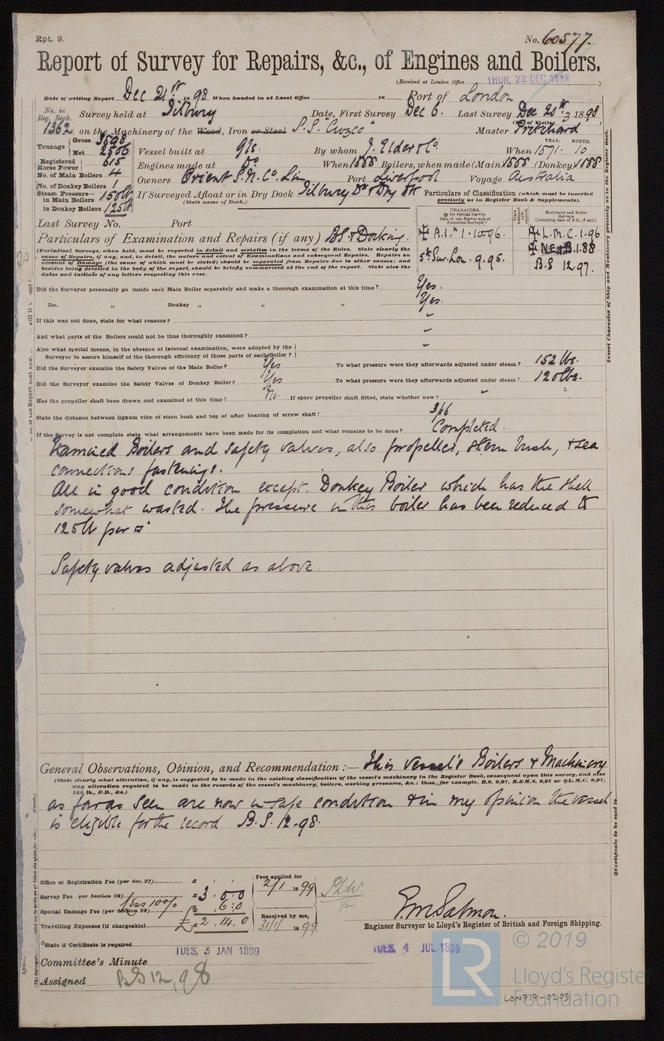 Rpt. 9.
No. 60577.
Report of Survey for Repairs, &c., of Engines and Boilers.
(Received at London Office THUR. 22 DEC 1898
Date of writing Report Dec 21st 1898 When handed in at Local Office 18 Port of London
No. in Reg. Book. Survey held at Tilbury Date, First Survey Dec 6. Last Survey Dec 20th 1898
1362 on the Machinery of the Wood, Iron or Steel S.S. "Cuzco" Master Pritchard
Tonnage Gross 3898 Net 2506 Vessel built at Gls. By whom J. Elder & Co When 1871. 10 YEAR. MONTH.
Registered Horse Power 615 Engines made at Do When 1888 Boilers, when made (Main) 1888 (Donkey) 1888
No. of Main Boilers 4 Owners Orient S.N. Co. Lim Port Liverpool Voyage Australia
No. of Donkey Boilers 1
Steam Pressure— in Main Boilers 150 lb If Surveyed Afloat or in Dry Dock Tilbury Dk & Dry Dk
in Donkey Boilers 125 lb (State name of Dock.)
Particulars of Classification (which must be inserted precisely as in Register Book & Supplements).
Last Survey No. Port
A.1. 1-10-96 L.M.C. 1.96
5th Sur. Lon. 9.95. N.B. 1.88
B.S 12.97.
Particulars of Examination and Repairs (if any) B.S. & Docking.
(Periodical Surveys, when held, must be reported in detail and seriatim in the terms of the Rules. State clearly the cause of Repairs, if any, and, in detail, the nature and extent of Examinations and subsequent Repairs. Repairs on account of Damage (the cause of which must be stated) should be separated from Repairs due to other causes; and besides being detailed in the body of the report, should be briefly summarized at the end of the report. State also the dates and initials of any letters respecting this case.
Did the Surveyor personally go inside each Main Boiler separately and make a thorough examination at this time? Yes.
Do. „ Donkey „ „ „ Yes.
If this was not done, state for what reasons? –
And what parts of the Boilers could not be thus thoroughly examined? –
Also what special means, in the absence of internal examination, were adopted by the Surveyor to assure himself of the thorough efficiency of those parts of each Boiler? –
Did the Surveyor examine the Safety Valves of the Main Boiler? Yes To what pressure were they afterwards adjusted under steam? 152 lbs.
Did the Surveyor examine the Safety Valves of Donkey Boiler? Yes To what pressure were they afterwards adjusted under steam? 120 lbs.
Has the propeller shaft been drawn and examined at this time? No. If spare propeller shaft fitted, state whether new?
State the distance between lignum vitæ of stern bush and top of after bearing of screw shaft? 3/16
If the Survey is not complete state what arrangements have been made for its completion and what remains to be done? Completed.
Examined Boilers and safety valves, also propeller, stern bush, & sea
connections fastenings.
All in good condition except Donkey Boiler which has the shell
somewhat wasted. The pressure in this boiler has been reduced to
125 lb per □"
Safety valves adjusted as above.
General Observations, Opinion, and Recommendation:— This vessel's Boilers & Machinery
(State clearly what alteration, if any, is suggested to be made in the existing classification of the vessel's machinery in the Register Book, consequent upon this survey, and also any alteration required to be made in the records of the vessel's machinery, boilers, working pressures, &c.; thus, for example, B.S. 9,97, B.&M.S. 9,97 or L.M.C. 9,97, 140 lb., F.D., &c.)
as far as seen are now in safe condition & in my opinion the vessel
is eligible for the record B.S. 12-98.
Office or Registration Fee (per Sec. 27) £ : :
Survey Fee (per Section 28) £ 3 : 0 : 0 Fees applied for 2/1 1899
Special Damage Fee (per Section 28) less 10% £ : 6 : 0
Travelling Expenses (if chargeable) £ 2 . 14 . 0 Received by me, 31/1 1899
Engineer Surveyor to Lloyd's Register of British and Foreign Shipping.
State if Certificate is required
Committee's Minute TUES. 3 JAN 1899 TUES. 4 JUL 1899
Assigned BS 12,98
LR © 2019
Lloyd's Register
Foundation